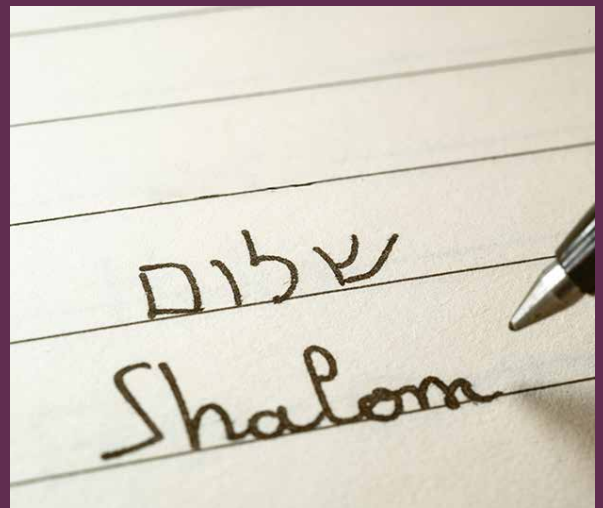 שלום
Shalom